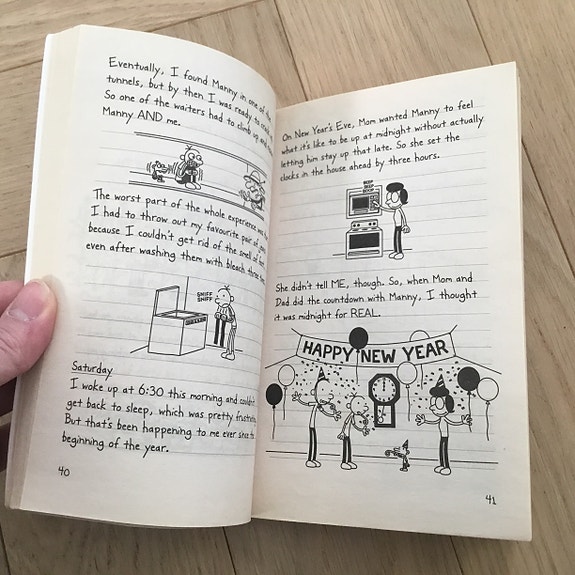 Eventually, I found Manny in one of the
tunnels, but by then I was ready to
So one of the waiters had to climb up and
Manny AND me.
The worst part of the whole experience was
I had to throw out my favourite pair of
because I couldn't get rid of the smell of
even after washing them with bleach three
SNIFF
SNIFF
Saturday
I woke up at 6:30 this morning and couldn't
get back to sleep, which was pretty
But that's been happening to me ever since
beginning of the year.
40
On New Year's Eve, Mom wanted Manny to feel
what it's like to be up at midnight without actually
letting him stay up that late. So she set the
clocks in the house ahead by three hours.
BEEP
BEEP
BOOP
She didn't tell ME, though. So, when Mom and
Dad did the countdown with Manny, I thought
it was midnight for REAL.
HAPPY NEW YEAR
41